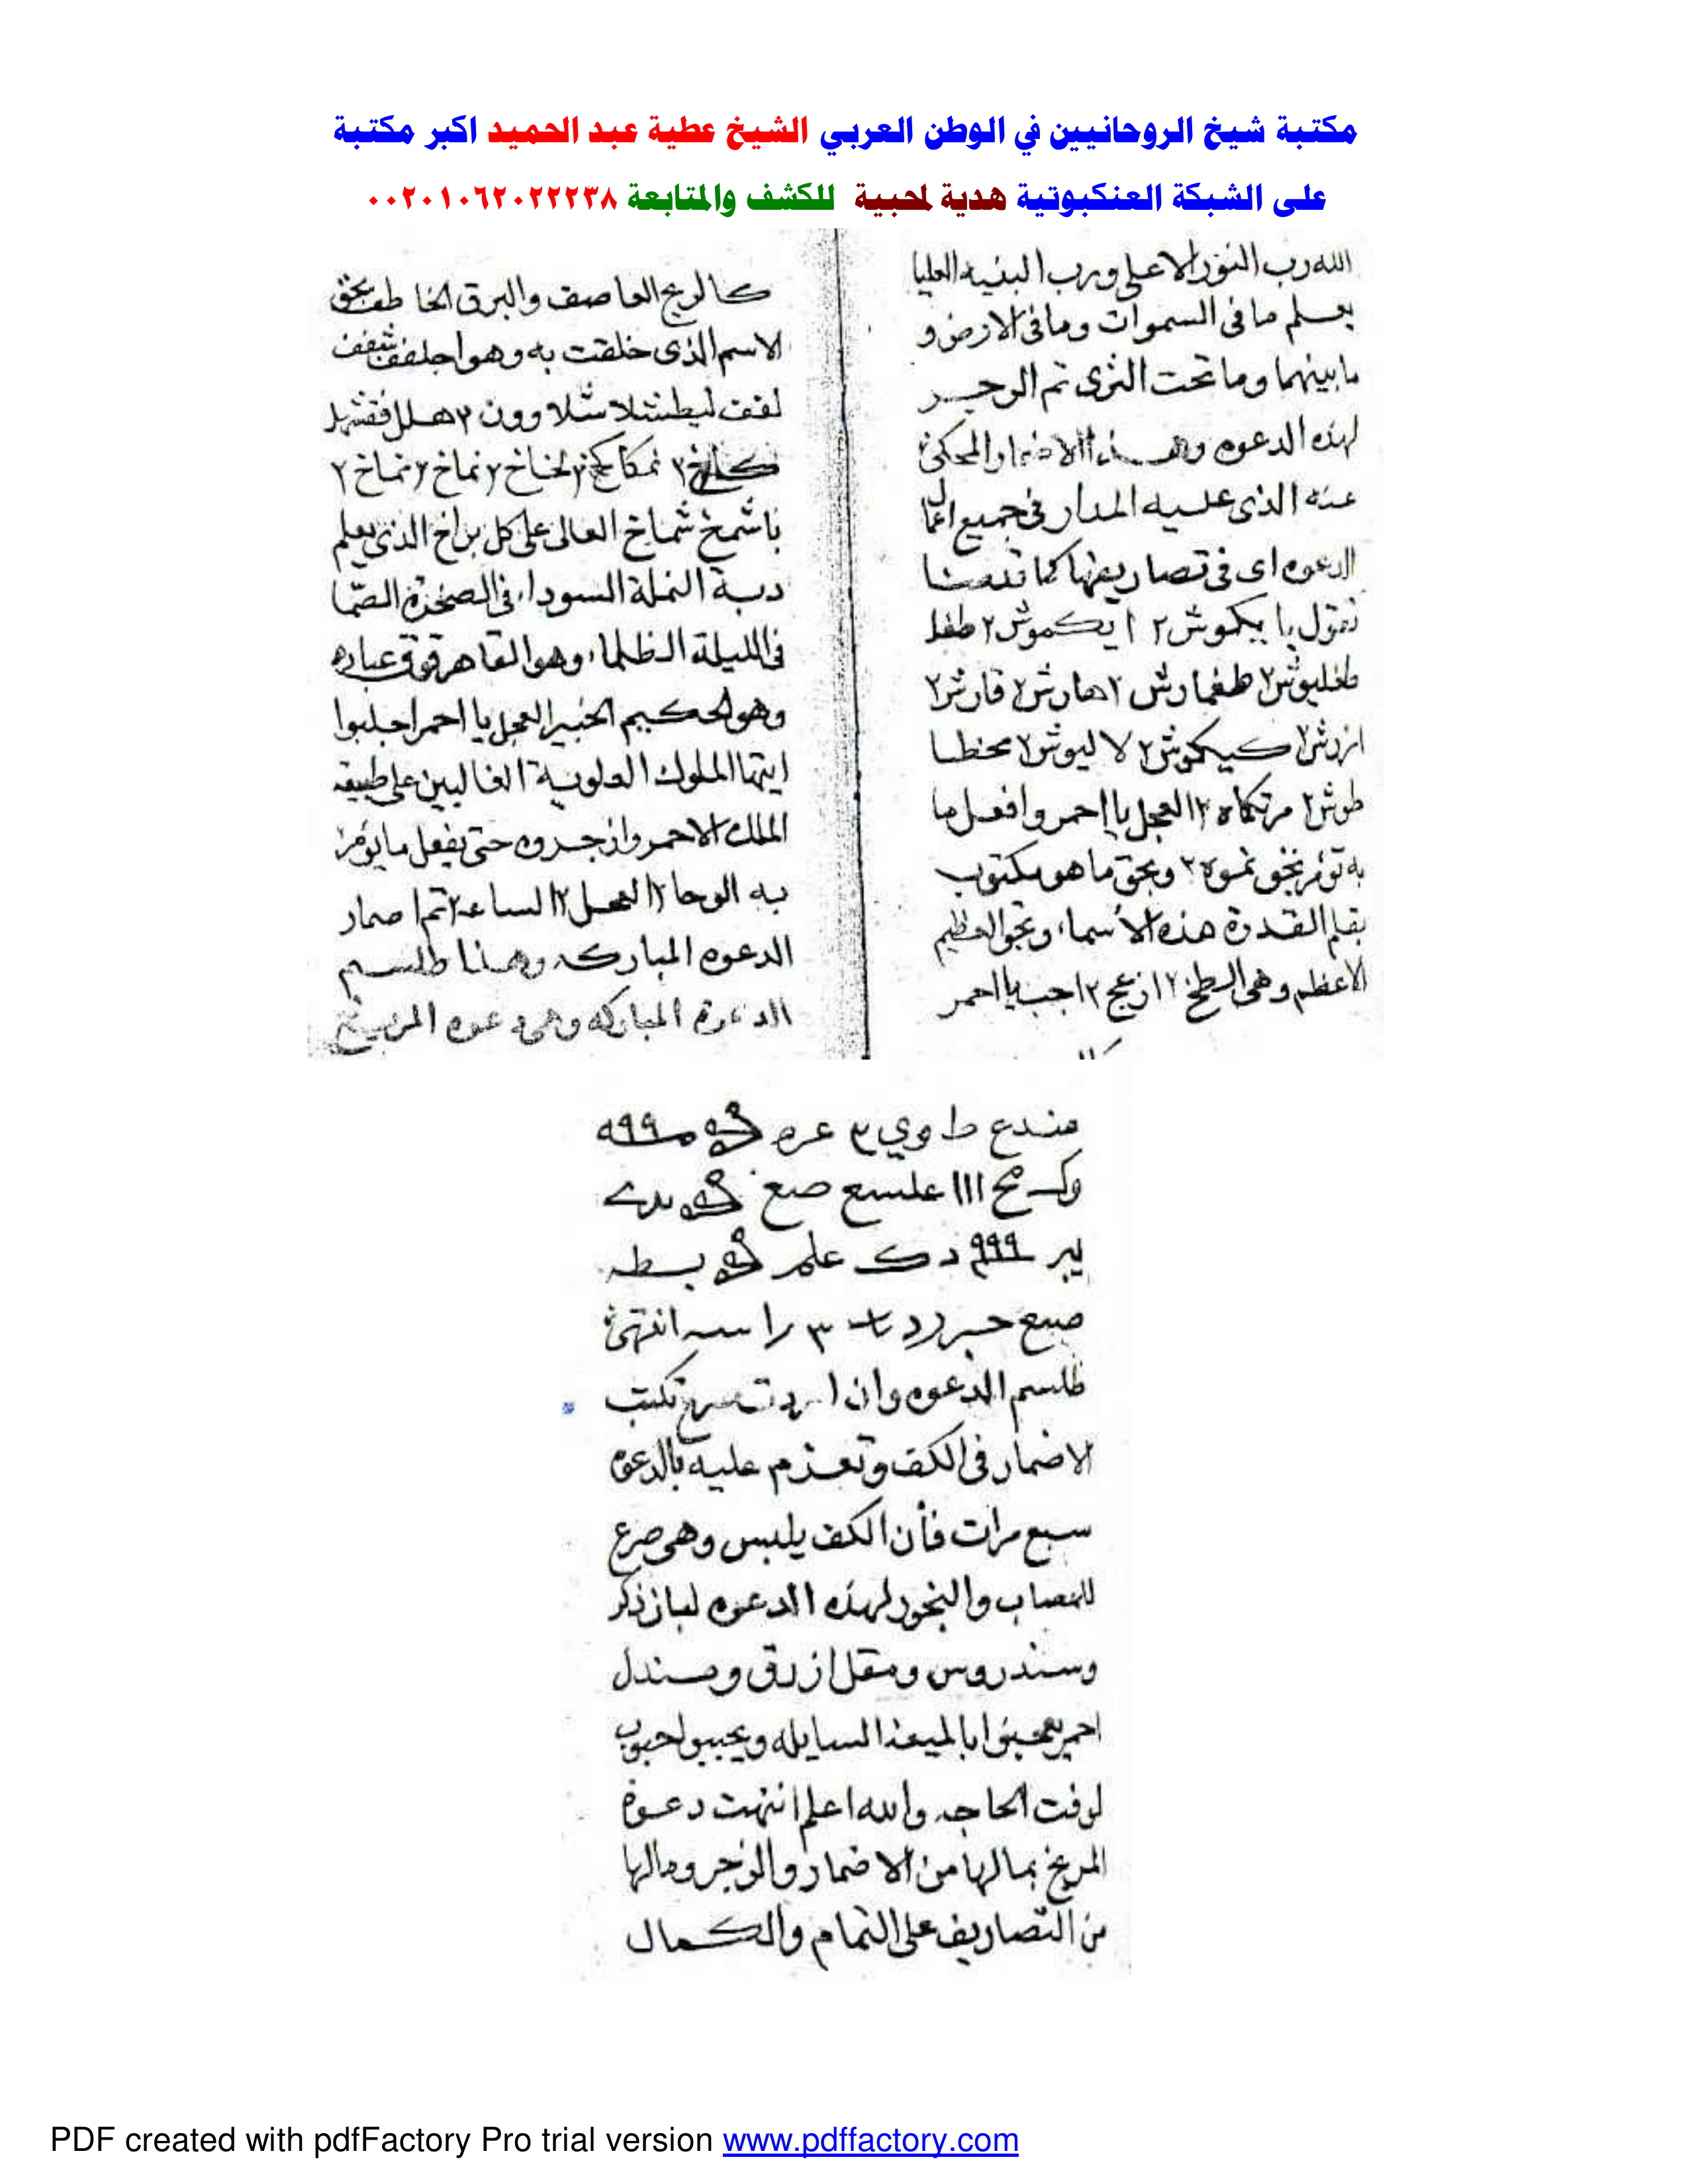 مكتبة شيخ الروحانيين في الوطن العربي الشيخ عطية عبد الحميد اكبر مكتبة
على الشبكة العنكبوتية هدية لمحبية للكشف والمتابعة ٠٠٢٠١٠٦٢٠٢٢٢٣٨
الله رب النور الاعلى ورب البنيه العليا
يعلم ما فى السموات وما فى الارض و
ما بينهما وما تحت الثرى تم الوجر
لهذه الدعوه وهذا الاضمار المحكى
عنه الذى عليه المدار فى جميع اعمال
الدعوه اى فى تصاريفها كما تقدمنا
تقول يا بيكموش ٢ ايكموش ٢ طفل
طغليوش ٢ طغمارش ٢ هارش ٢ قارش ٢
ازرش ٢ كيكموش ٢ لاليوش ٢ محظا
طوش ٢ مرتكاه ٢ العجل يا احمر وافعل ما
به تؤمر بحق نموه ٢ وبحق ما هو مكتوب
بقلم القدرة هذه الأسماء وبحق العظيم
الاعظم وهى السطخ ٢ ازعج ٢ اجب يا احمر
كال
كالريح العاصف والبرق الخاطف بحق
الاسم الذى خلقت به وهو اجلفف شفف
لفف ليطشلا شلاوون ٣ هلل
٢ نماخ ٢ نماخ ٢
باشمخ شماخ العالى على كل براخ الذى يعلم
دبة النملة السوداء فى الصخرة الصما
فى الليلة الظلماء وهو القاهر فوق عباده
وهو الحكيم الخبير العجل يا احمر اجلبوا
ايتها الملوك العلوية الغالبين على طبيعة
الملك الاحمر وازجروه حتى يفعل ما يؤمر
به الوحا ٢ العجل ٢ الساعة ٢ تم اضمار
الدعوه المباركه وهذا طلسم
الدعوة المباركه وهى دعوه المريخ
ط وي ٣
ااا علسع صع
٩٩٩ د ك علم بسطه
٣ انتهى
طلسم الدعوه وان اردت تكتب
الاضمار فى الكف وتعزم عليه بالدعوه
سبع مرات فأن الكف يلبس وهى صرع
للمصاب والبخور لهذه الدعوه لبان ذكر
وسندروس ومقل ازرق وصندل
احمر بالميعه السايله ويحبب حبوب
لوقت الحاجه والله اعلم انتهت دعوة
المريخ بمالها من الاضمار والزجر ومالها
من التصاريف على التمام والكمال
PDF created with pdfFactory Pro trial version www.pdffactory.com